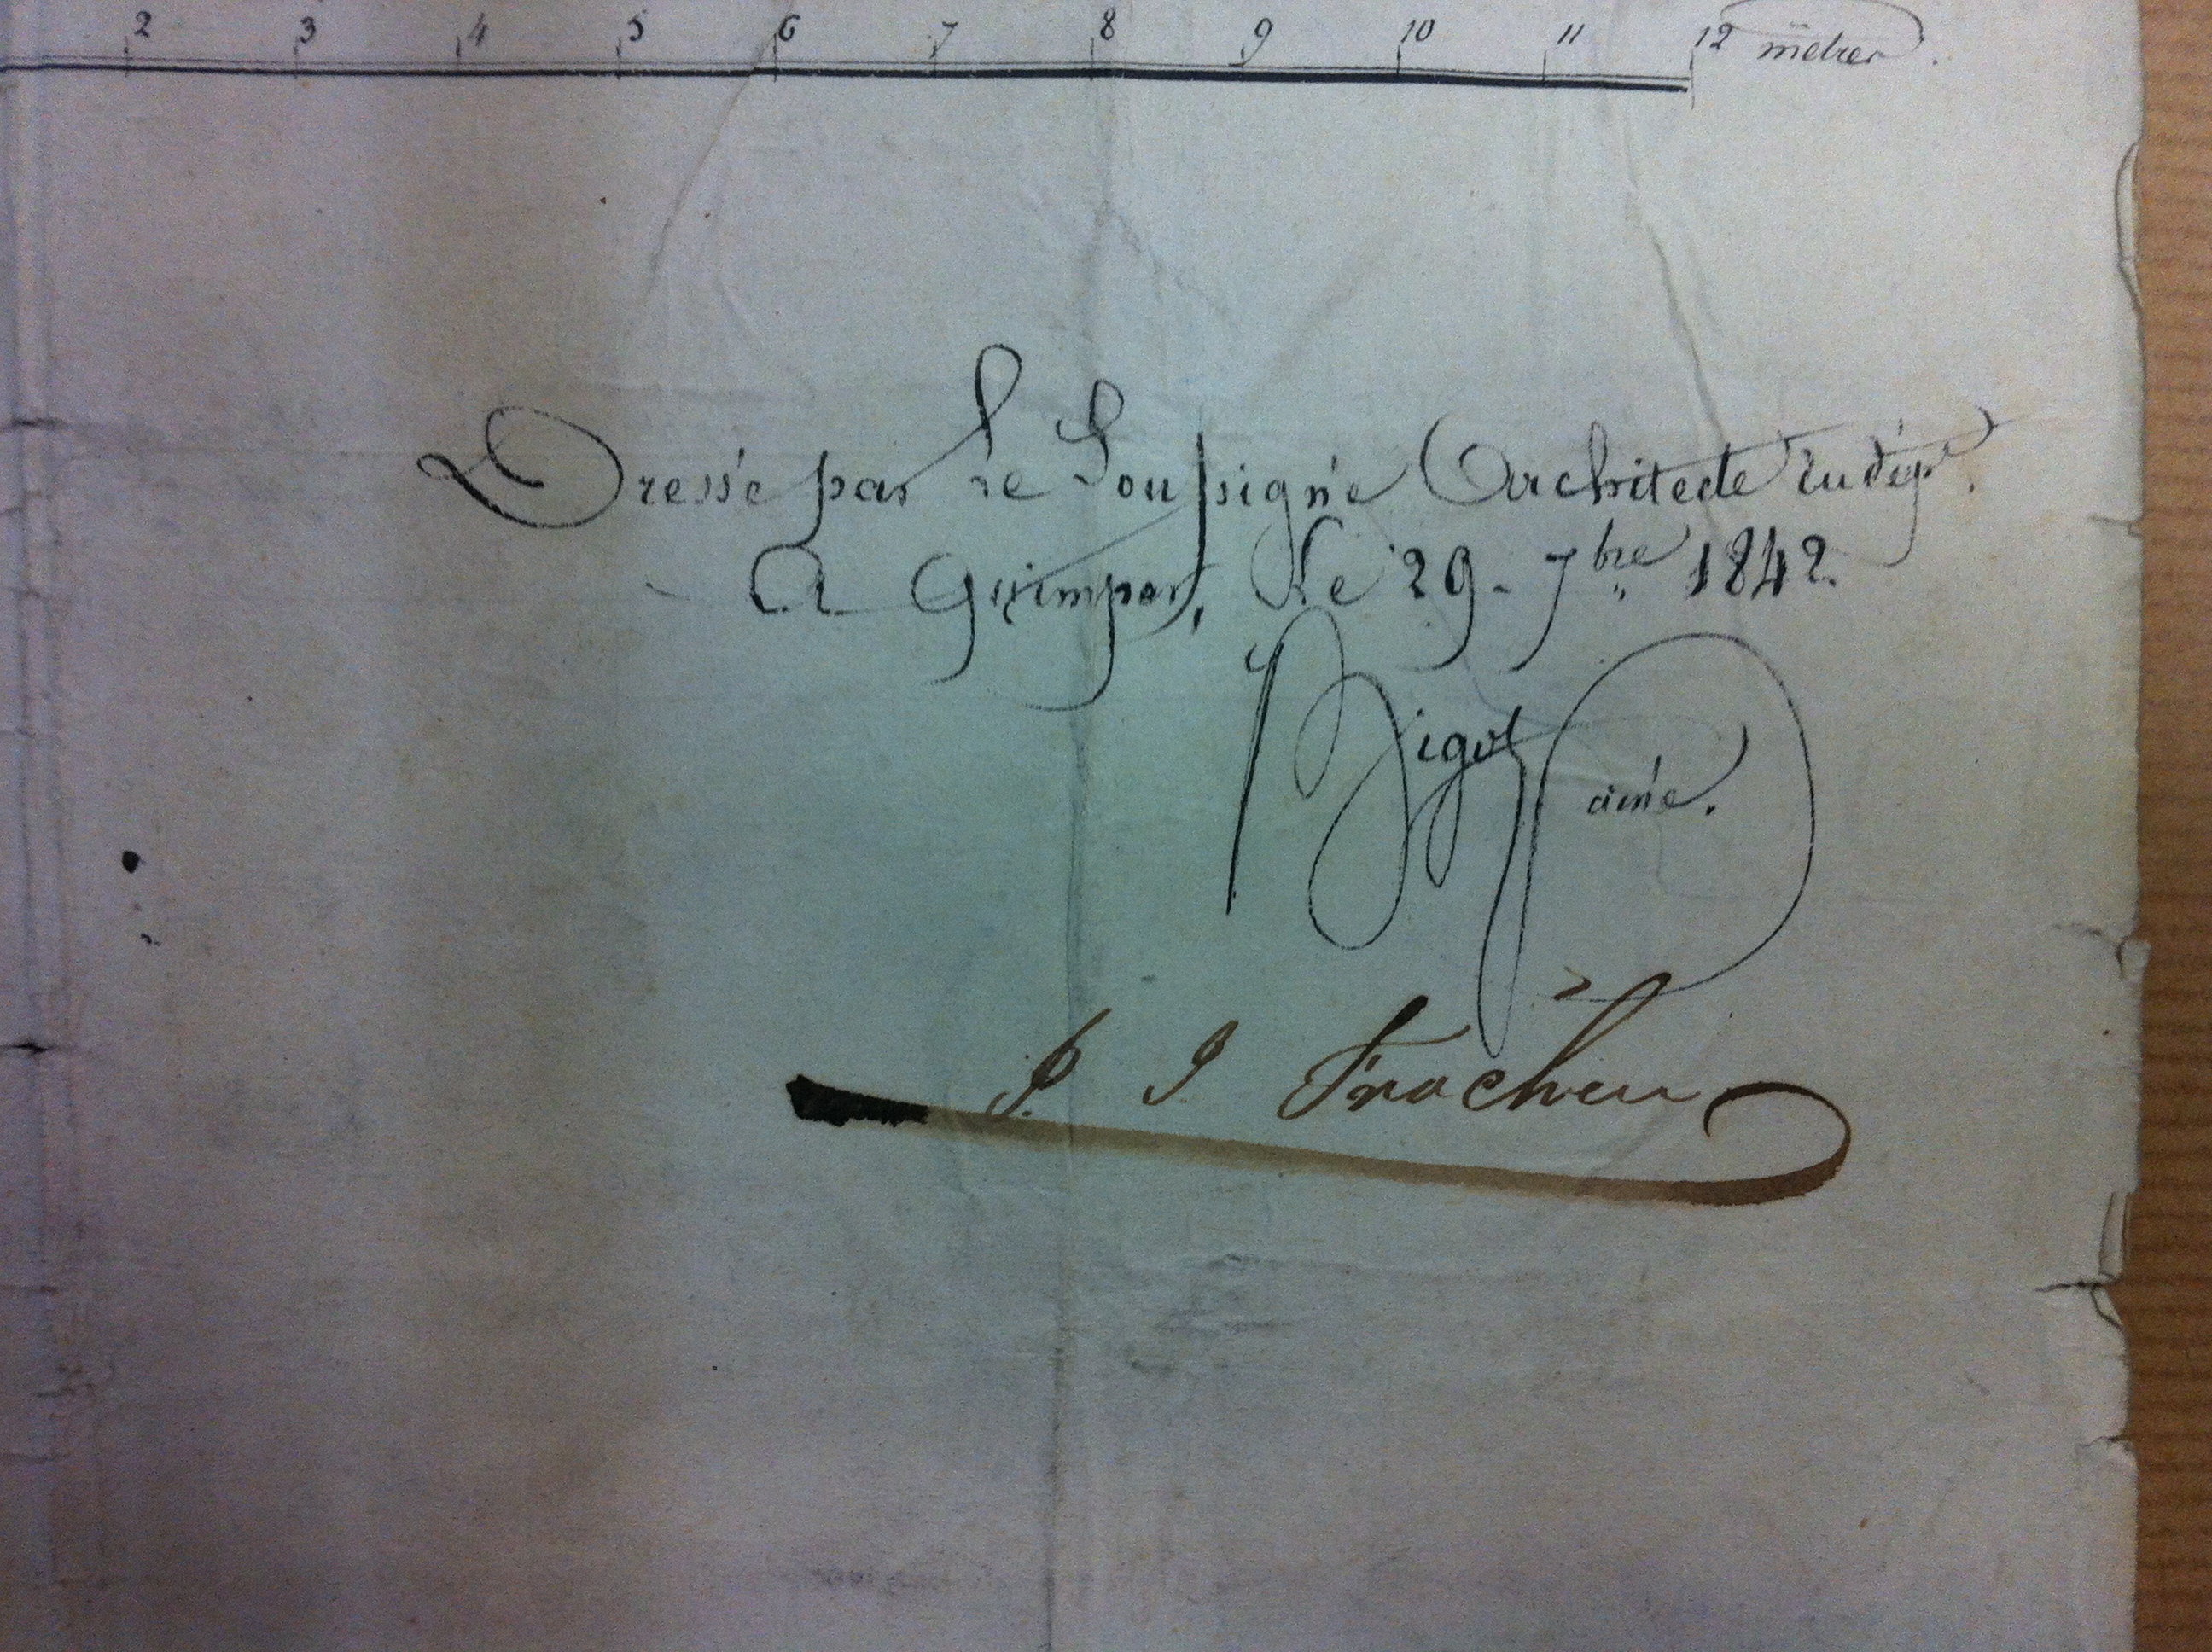 2 3 4 5 6 7 8 9 10 11 12 mètres.
Dressé par le Soussigné Architecte du dépt.
A Quimper, le 29 - 7bre 1842.
Bigot
ainé.
P. J Frocheu